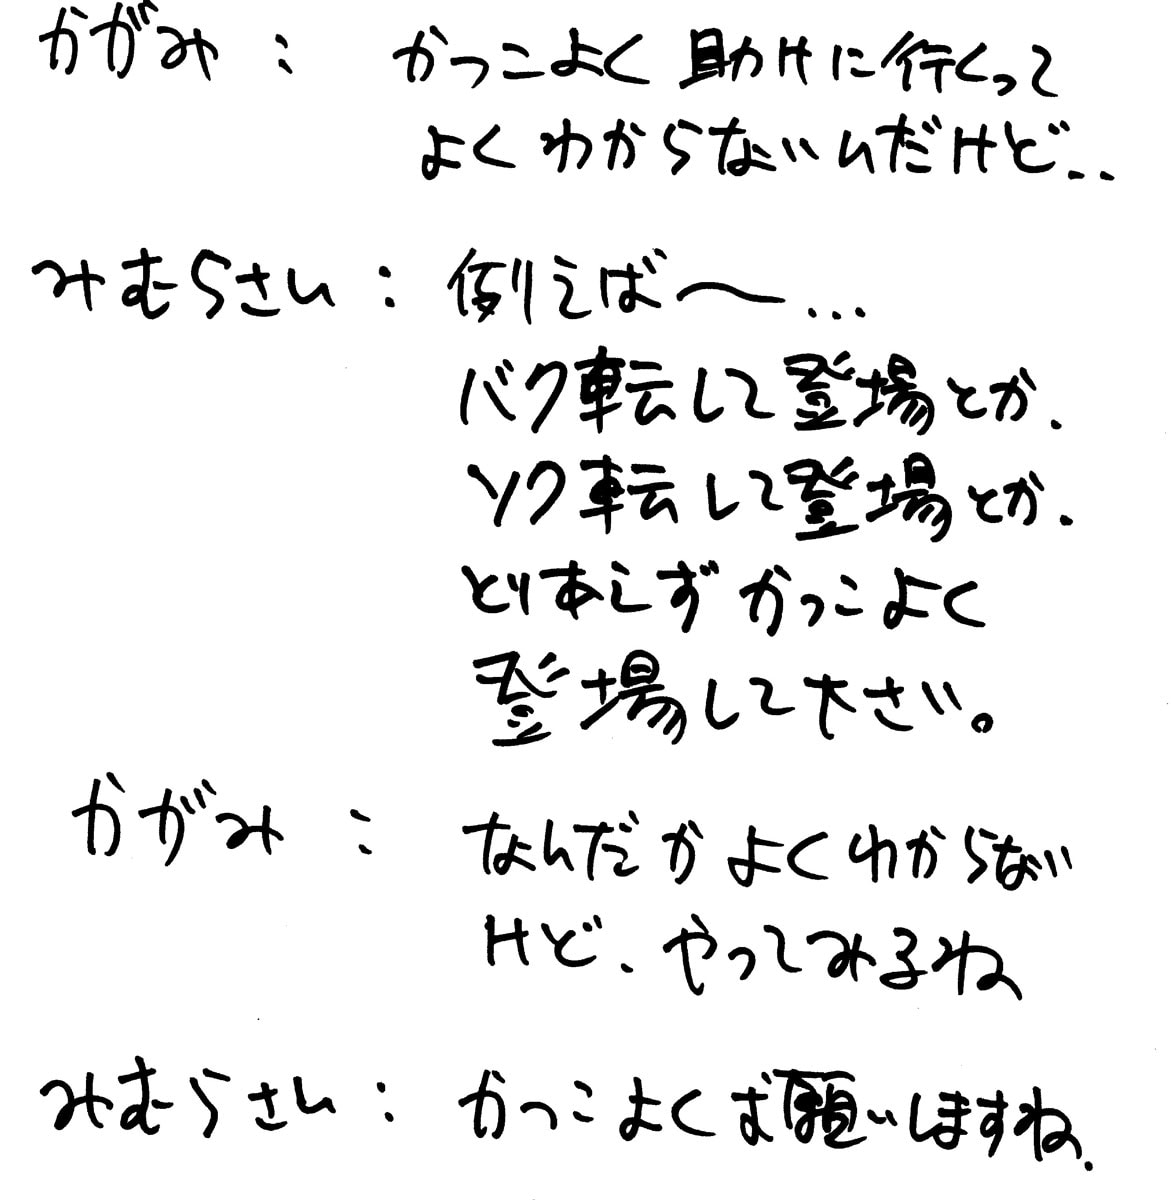 かがみ： かっこよく助けに行くって
よくわからないんだけど..
みむらさん： 例えば〜...
バク転して登場とか.
ソク転して登場とか.
とりあえずかっこよく
登場して下さい。
かがみ： なんだかよくわからない
けど、やってみるね
みむらさん： かっこよくお願いしますね.